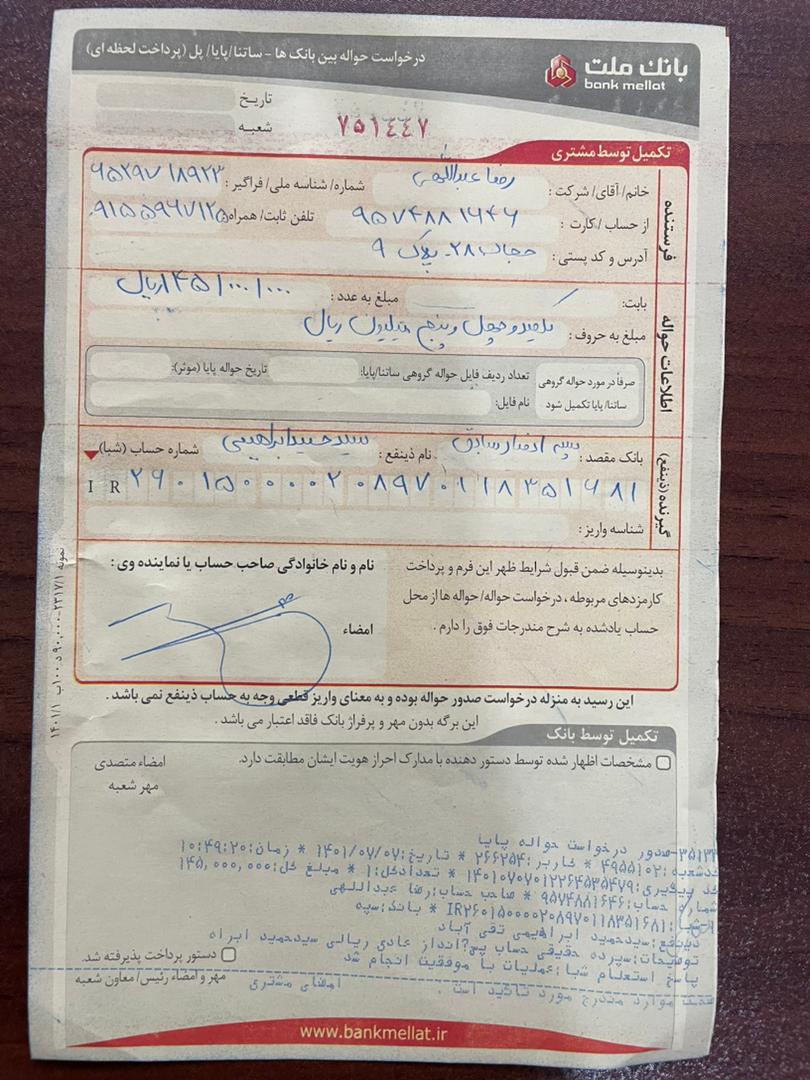 بانک ملت
bank mellat
درخواست حواله بین بانک ها - ساتنا/پایا/ پل (پرداخت لحظه ای)
تاریخ
شعبه
۷۵۱۴۴۷
تکمیل توسط مشتری
فرستنده
خانم/ آقای/ شرکت : رضا عبداللهی شماره/ شناسه ملی/ فراگیر :
از حساب /کارت : ۹۵۷۴۸۸۱۶۴۶ تلفن ثابت/ همراه: ۰۹۱۵۵۹۶۷۱۲۵
آدرس و کد پستی : ۲۸- پلاک ۹
اطلاعات حواله
بابت: مبلغ به عدد : ۱۴۵/۰۰۰/۰۰۰ ریال
مبلغ به حروف : یکصد و چهل و پنج میلیون ریال
صرفاً در مورد حواله گروهی تعداد ردیف فایل حواله گروهی ساتنا/پایا: تاریخ حواله پایا (موثر):
ساتنا/ پایا تکمیل شود نام فایل:
گیرنده (ذینفع)
بانک مقصد : سپه انصار سابق نام ذینفع : سید حمید ابراهیمی شماره حساب (شبا)
IR ۲۶۰۱۵۰۰۰۰۰۲۰۸۹۷۰۱۱۸۳۵۱۶۸۱
شناسه واریز :
بدینوسیله ضمن قبول شرایط ظهر این فرم و پرداخت
کارمزدهای مربوطه ، درخواست حواله/ حواله ها از محل
حساب یادشده به شرح مندرجات فوق را دارم .
نام و نام خانوادگی صاحب حساب یا نماینده وی :
امضاء
این رسید به منزله درخواست صدور حواله بوده و به معنای واریز قطعی وجه به حساب ذینفع نمی باشد .
این برگه بدون مهر و پرفراژ بانک فاقد اعتبار می باشد .
تکمیل توسط بانک
مشخصات اظهار شده توسط دستور دهنده با مدارک احراز هویت ایشان مطابقت دارد.
امضاء متصدی
مهر شعبه
صدور درخواست حواله پایا
کدشعبه :۴۹۵۵۱۰۲ * کاربر :۲۶۶۲۵۴ * تاریخ:۱۴۰۱/۰۷/۰۷ * زمان:۱۰:۴۹:۲۰
کد پیگیری:۱۴۰۱۰۷۰۷۰۱۲۲۶۴۵۳۵۴۷۹ * تعدادکل:۱ * مبلغ کل:۱۴۵,۰۰۰,۰۰۰
شماره حساب:۹۵۷۴۸۸۱۶۴۶ * صاحب حساب:رضا عبداللهی
IR۲۶۰۱۵۰۰۰۰۰۲۰۸۹۷۰۱۱۸۳۵۱۶۸۱ * بانک:سپه
ذینفع:سیدحمید ابراهیمی تقی آباد
توضیحات:سپرده حقیقی حساب پس?انداز عادی ریالی سیدحمید ابراه
پاسخ استعلام شبا:عملیات با موفقیت انجام شد
موارد مندرج مورد تائید است . امضای مشتری
دستور پرداخت پذیرفته شد.
مهر و امضاء رئیس/ معاون شعبه
www.bankmellat.ir